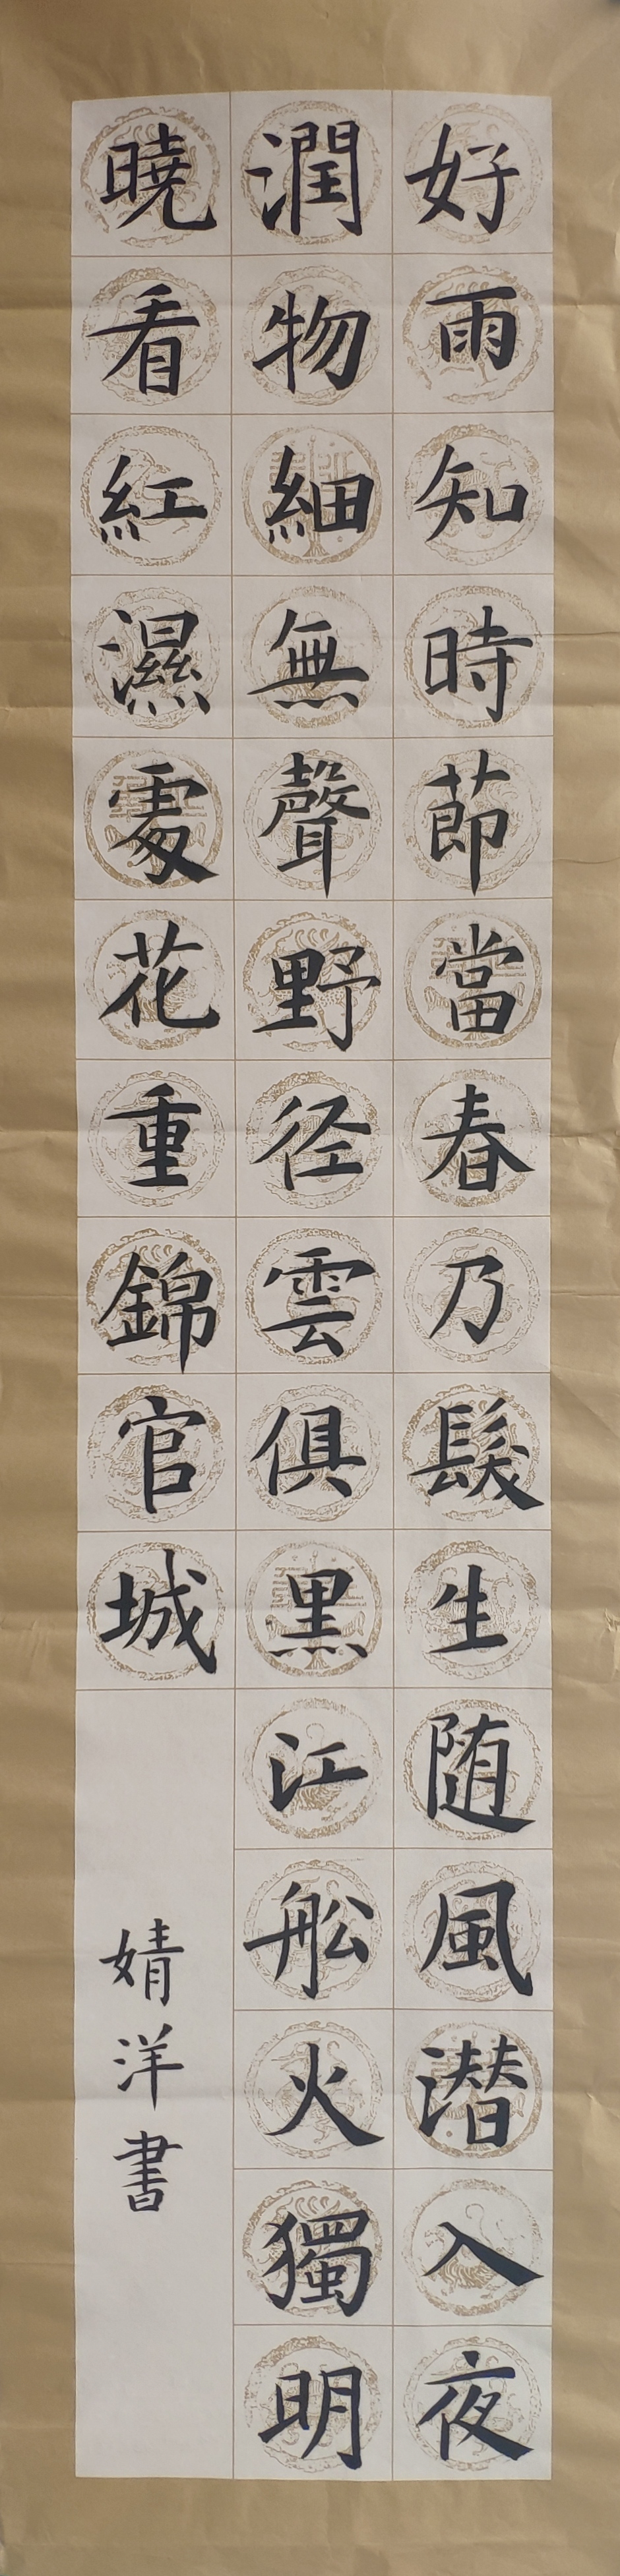 好雨知時節當春乃髮生随風潜入夜
潤物細無聲野径雲俱黑江舩火獨明
曉看紅濕處花重錦官城
婧洋書